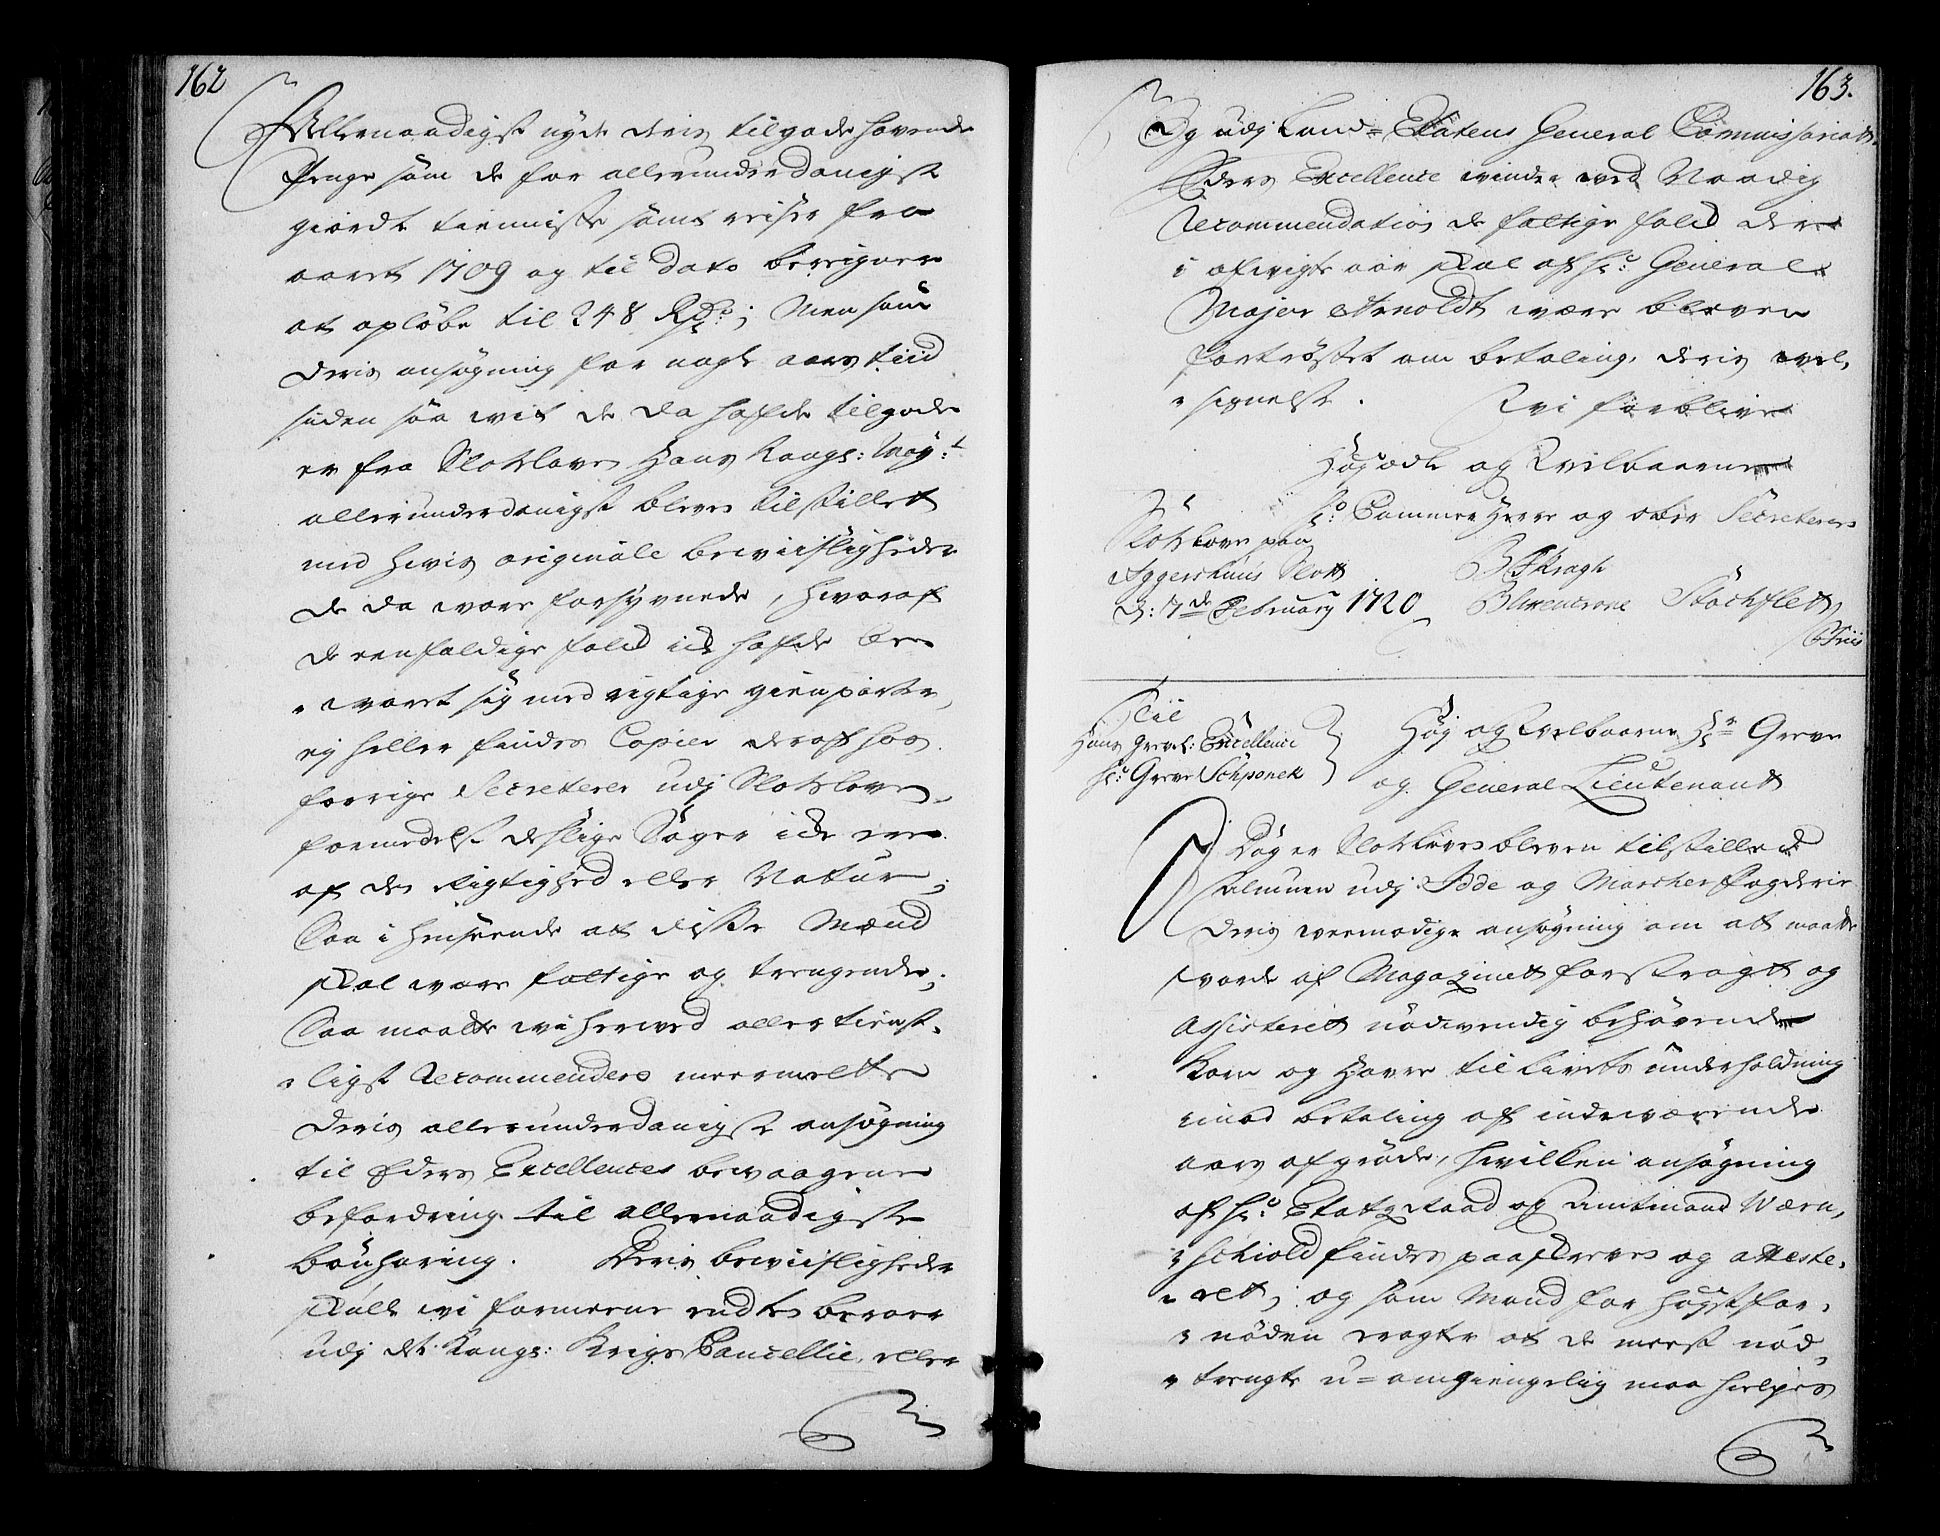 162
Allernaadigst nyde deris tilgode hafvende
Penge som de for allerunderdanigst
giordt tienniste samt reiser fra
aaret 1709 og til dato beregner
at opløbe til 248 Rdr; Men som
deris ansøgning for nogle aars tiid
siden saa vit de da hafde tilgode
er fra Slotzlove Hans Kongs: May:t
allerunderdanigst blever tilstillet
med hvis originale beviisligheder
de da vare forsynede, hvoraf
de eenfoldige folck icke hafde be-
varet sig med rigtige gienparter,
ej heller findes Copier deraf hos
forrige Secreterer udj Slotzloven
formedelst deslige Sager icke ere
af de Rigtighed eller Natur;
Saa i henseende at disse Mænd
skal være fattige og trengende;
Saa maatte vi herved allertienst-
ligst Recommendere meermelte
deris allerunderdanigste ansøgning
til Eders Excellences bevaagene
befordring til allernaadigste
bønhøring. Deris beviisligheder
skulle vi formeene endten beroer
udj det Kongs: Krigs Cancellie, eller
163.
Og udj Land-Etatens General Commissariatt.
Eders Excellence vinder ved Naadig
Recommendation de fattige folck der
i afvigte aar skal af Hr: General
Major Arnoldt være bleven
fortrøstet om betaling, deris vel-
signelse. Vi forblive
Høyædle og Velbaarne
Hr: Cammer Herre og ober Secreterers
Slotzlove paa
Aggershuus Slott
d: 7de February 1720
B Kragh
Blixencrone Stochfleth
C Friis
Til
Hans Grevel: Excellence
Hr: Greve Schponek
Høy og Velbaarne Hr Greve
og General Lieutenant
Dog er Slotzloves bleven tilstilled
Almuen udj Idde og Marcher fogderie
deris veemodige ansøgning om att maatte
vorde af Magazinet forstragt og
Assisteret nødvendig behøvende
Korn og Havre til livets underholdning
imod betaling af indeværende
aars afgrøde, hvilken ansøgning
af Hr: Etatz Raad og Amtmand Wærn-
schiold findes paaskreves og atteste-
ret; og som Mand for høyst for-
nøden eragter at de meest nød-
trengte u-omgiengelig maa hielpes